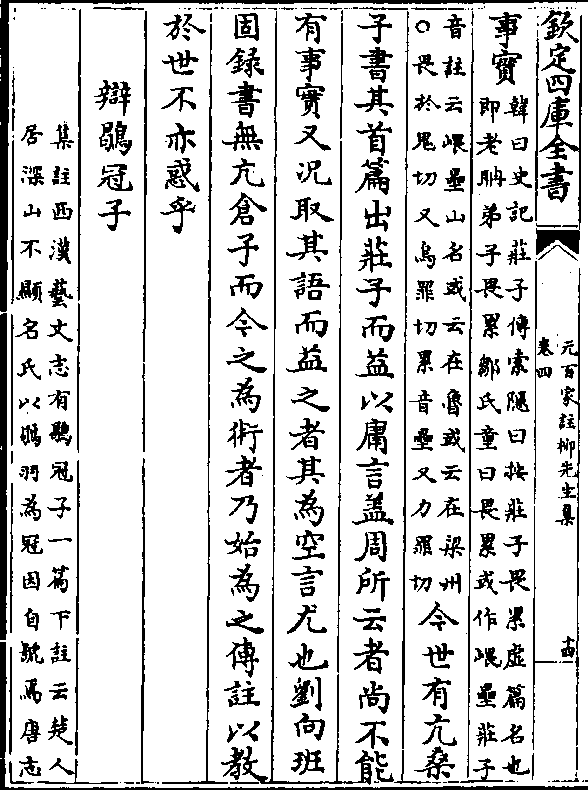 欽定四庫全書
五百家註柳先生集
卷四
十四
事實
韓曰史記莊子傳索隱曰按莊子畏累虚篇名也
即老聃弟子畏累鄒氏童曰畏累或作㟪壘莊子
音註云㟪壘山名或云在魯或云在梁州
○畏於鬼切又烏罪切累音壘又力罪切
今世有亢桑
子書其首篇出莊子而益以庸言蓋周所云者尚不能
有事實又況取其語而益之者其為空言尤也劉向班
固錄書無亢倉子而今之為術者乃始為之傳註以教
於世不亦惑乎
辯鶡冠子
集註西漢藝文志有鶡冠子一篇下註云楚人
居深山不顯名氏以鶡羽為冠因自號焉唐志